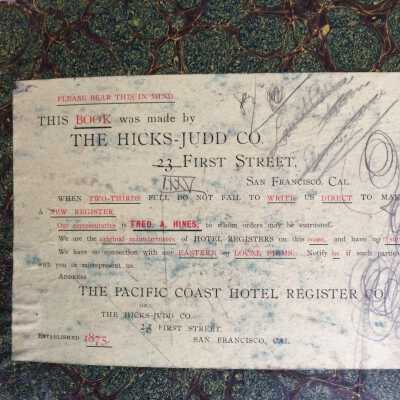 PLEASE BEAR THIS IN MIND
THIS BOOK was made by
THE HICKS-JUDD CO.
23 FIRST STREET,
SAN FRANCISCO, CAL.
WHEN TWO-THIRDS FULL DO NOT FAIL TO WRITE US DIRECT TO MAK
A NEW REGISTER
Our representative is FRED. A. HINES, to whom orders may be entrusted.
We are the original manufacturers of HOTEL REGISTERS on this coast, and have no
We have no connection with any EASTERN or LOCAL FIRMS. Notify us if such parties
with you or misrepresent us.
ADDRESS
THE PACIFIC COAST HOTEL REGISTER CO.
THE HICKS-JUDD CO.
23 FIRST STREET
ESTABLISHED 1875. SAN FRANCISCO, CAL.